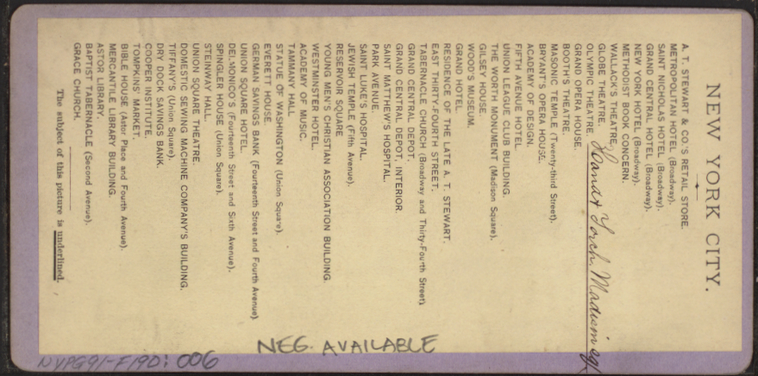 NEW YORK CITY.
A. T. STEWART & CO.'S RETAIL STORE.
METROPOLITAN HOTEL (Broadway).
SAINT NICHOLAS HOTEL (Broadway).
GRAND CENTRAL HOTEL (Broadway).
NEW YORK HOTEL (Broadway).
METHODIST BOOK CONCERN.
WALLACK'S THEATRE.
GLOBE THEATRE.
OLYMPIC THEATRE.
GRAND OPERA HOUSE.
BOOTH'S THEATRE.
MASONIC TEMPLE (Twenty-third Street).
BRYANT'S OPERA HOUSE.
ACADEMY OF DESIGN.
FIFTH AVENUE HOTEL.
UNION LEAGUE CLUB BUILDING.
THE WORTH MONUMENT (Madison Square).
GILSEY HOUSE.
WOOD'S MUSEUM.
GRAND HOTEL.
RESIDENCE OF THE LATE A. T. STEWART.
EAST THIRTY-FOURTH STREET.
TABERNACLE CHURCH (Broadway and Thirty-Fourth Street).
GRAND CENTRAL DEPOT.
GRAND CENTRAL DEPOT, INTERIOR.
SAINT MATTHEW'S HOSPITAL.
PARK AVENUE.
SAINT LUKE'S HOSPITAL.
JEWISH TEMPLE (Fifth Avenue).
RESERVOIR SQUARE.
YOUNG MEN'S CHRISTIAN ASSOCIATION BUILDING.
WESTMINSTER HOTEL.
ACADEMY OF MUSIC.
TAMMANY HALL.
STATUE OF WASHINGTON (Union Square).
EVERETT HOUSE.
GERMAN SAVINGS BANK (Fourteenth Street and Fourth Avenue).
UNION SQUARE HOTEL.
DELMONICO'S (Fourteenth Street and Sixth Avenue).
SPINGLER HOUSE (Union Square).
STEINWAY HALL.
UNION SQUARE THEATRE.
DOMESTIC SEWING MACHINE COMPANY'S BUILDING.
TIFFANY'S (Union Square).
DRY DOCK SAVINGS BANK.
COOPER INSTITUTE.
TOMPKINS' MARKET.
BIBLE HOUSE (Astor Place and Fourth Avenue).
MERCANTILE LIBRARY BUILDING.
ASTOR LIBRARY.
BAPTIST TABERNACLE (Second Avenue).
GRACE CHURCH.
The subject of this picture is underlined.
Hand & Torch, Madison sq
NEG. AVAILABLE
NYPG91-F190: 006